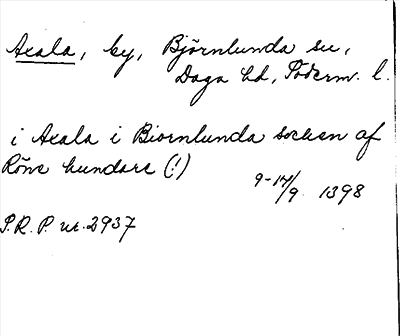 Axala, by, Björnlunda sn,
Daga hd, Söderm. l.
i Axala i Biornlunda socken af
Röne hundare (!)
9-14/9 1398
S.R.P. nr. 2937